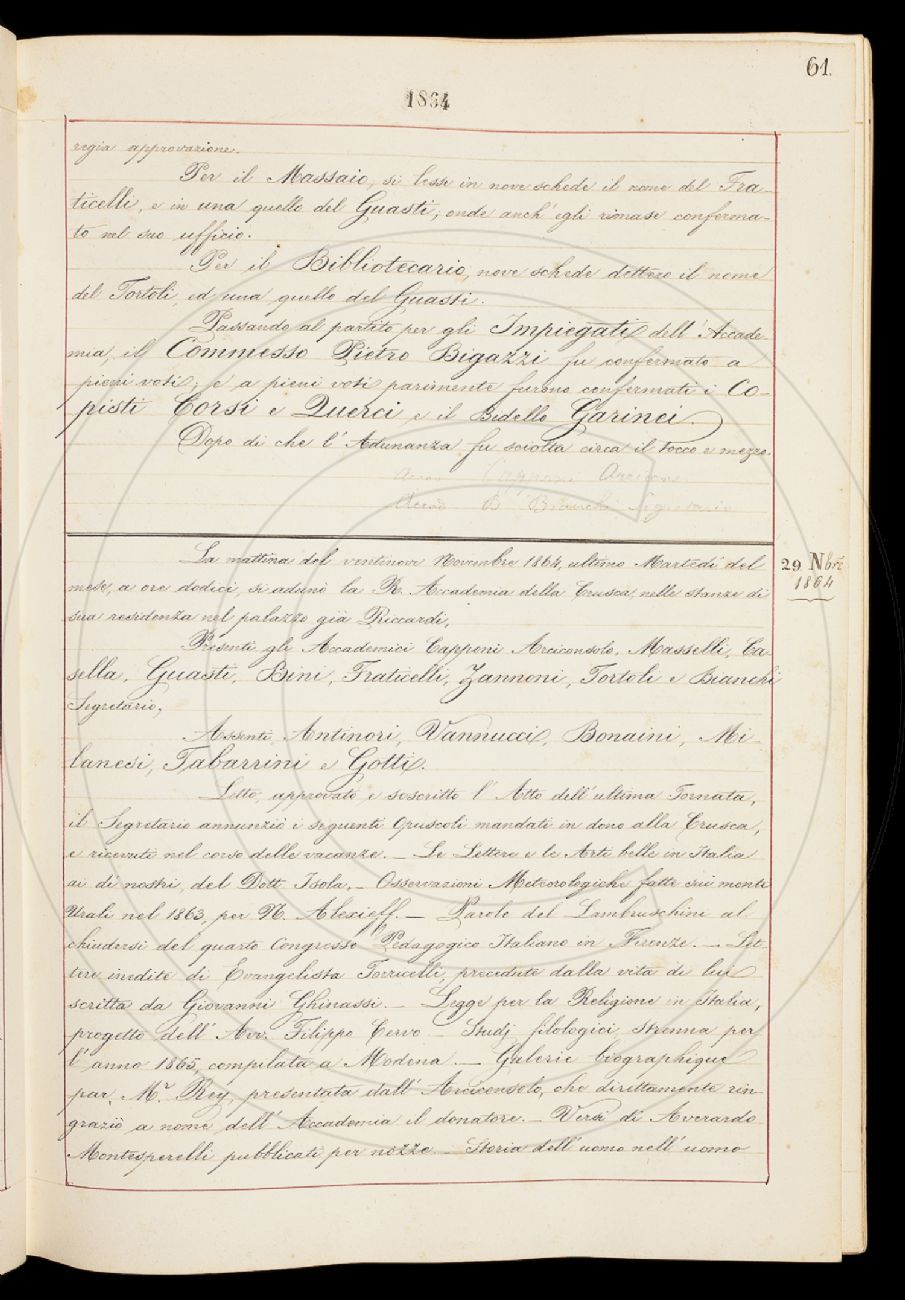 61.
1864
regia approvazione.
Per il Massaio, si lesse in nove schede il nome del Fra-
ticelli, e in una quello del Guasti; onde anch' egli rimase conferma-
to nel suo ufficio.
Per il Bibliotecario, nove schede dettero il nome
del Tortoli, ed una quello del Guasti.
Passando al partito per gli Impiegati dell' Accade-
mia, il Commesso Pietro Bigazzi fu confermato a
pieni voti; e a pieni voti parimente furono confermati i Co-
pisti Corsi e Querci e il Bidello Garinei.
Dopo di che l' Adunanza fu sciolta circa il tocco e mezzo.
Accad Capponi Arcicons.
Accad B Bianchi Segretario
29 Nbre
1864
La mattina del ventinove Novembre 1864, ultimo Martedì del
mese, a ore dodici, si adunò la R. Accademia della Crusca, nelle stanze di
sua residenza nel palazzo già Riccardi,
Presenti gli Accademici Capponi Arciconsolo, Masselli, Ca-
sella, Guasti, Bini, Fraticelli, Zannoni, Tortoli e Bianchi
Segretario;
Assenti, Antinori, Vannucci, Bonaini, Mi-
lanesi, Tabarrini e Gotti.
Letto, approvato e soscritto l' Atto dell' ultima Tornata,
il Segretario annunziò i seguenti Opuscoli mandati in dono alla Crusca,
e ricevuti nel corso delle vacanze. — Le Lettere e le Arti belle in Italia
ai dì nostri, del Dott. Isola. — Osservazioni Meteorologiche fatte sui monti
Urali nel 1863, per N. Alexieff. — Parole del Lambruschini al
chiudersi del quarto Congresso Pedagogico Italiano in Firenze. — Let
tere inedite di Evangelista Torricelli, precedute dalla vita di lui
scritta da Giovanni Ghinassi. — Legge per la Religione in Italia,
progetto dell' Avv. Filippo Cervo — Studj filologici, strenna per
l' anno 1865, compilata a Modena. — Galerie biographique
par Mr. Rey, presentata dall' Arciconsolo, che direttamente rin-
graziò a nome dell' Accademia il donatore. — Versi di Averardo
Montesperelli pubblicati per nozze. — Storia dell' uomo nell' uomo